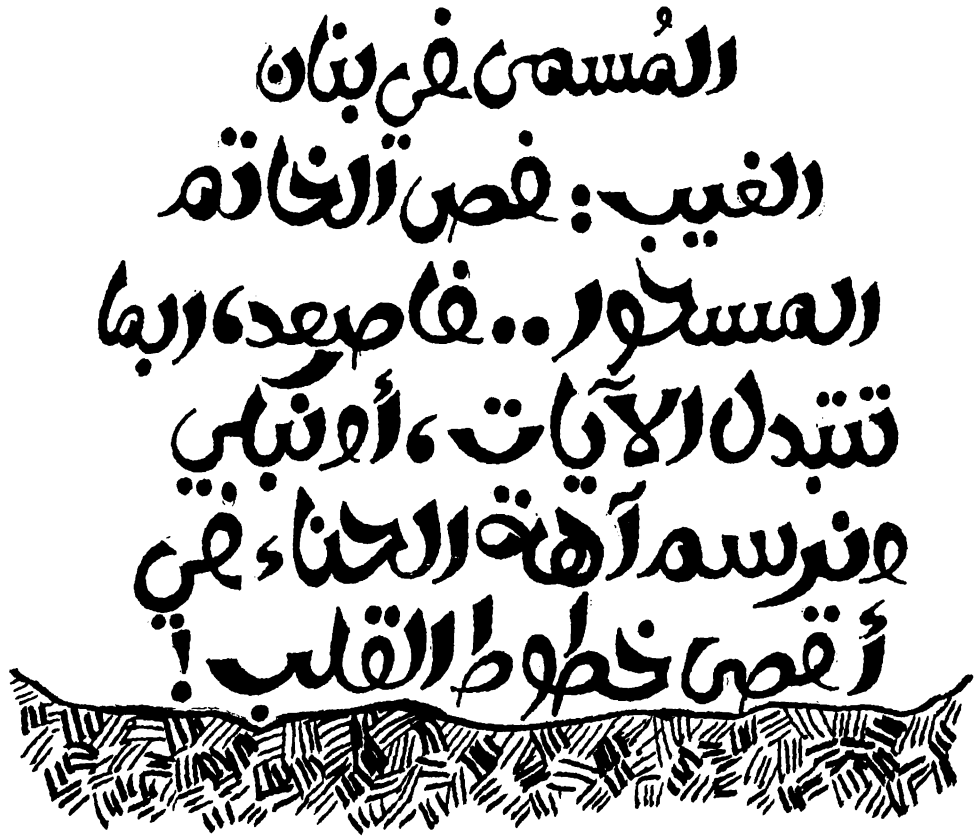 المُسمى في بنان
الغيب : فص الخاتم
المسحور .. فاصعد، ربما
تتبدل الآيات ، أو نبلي
ونرسم آهة الحناء في
أقصى خطوط القلب !